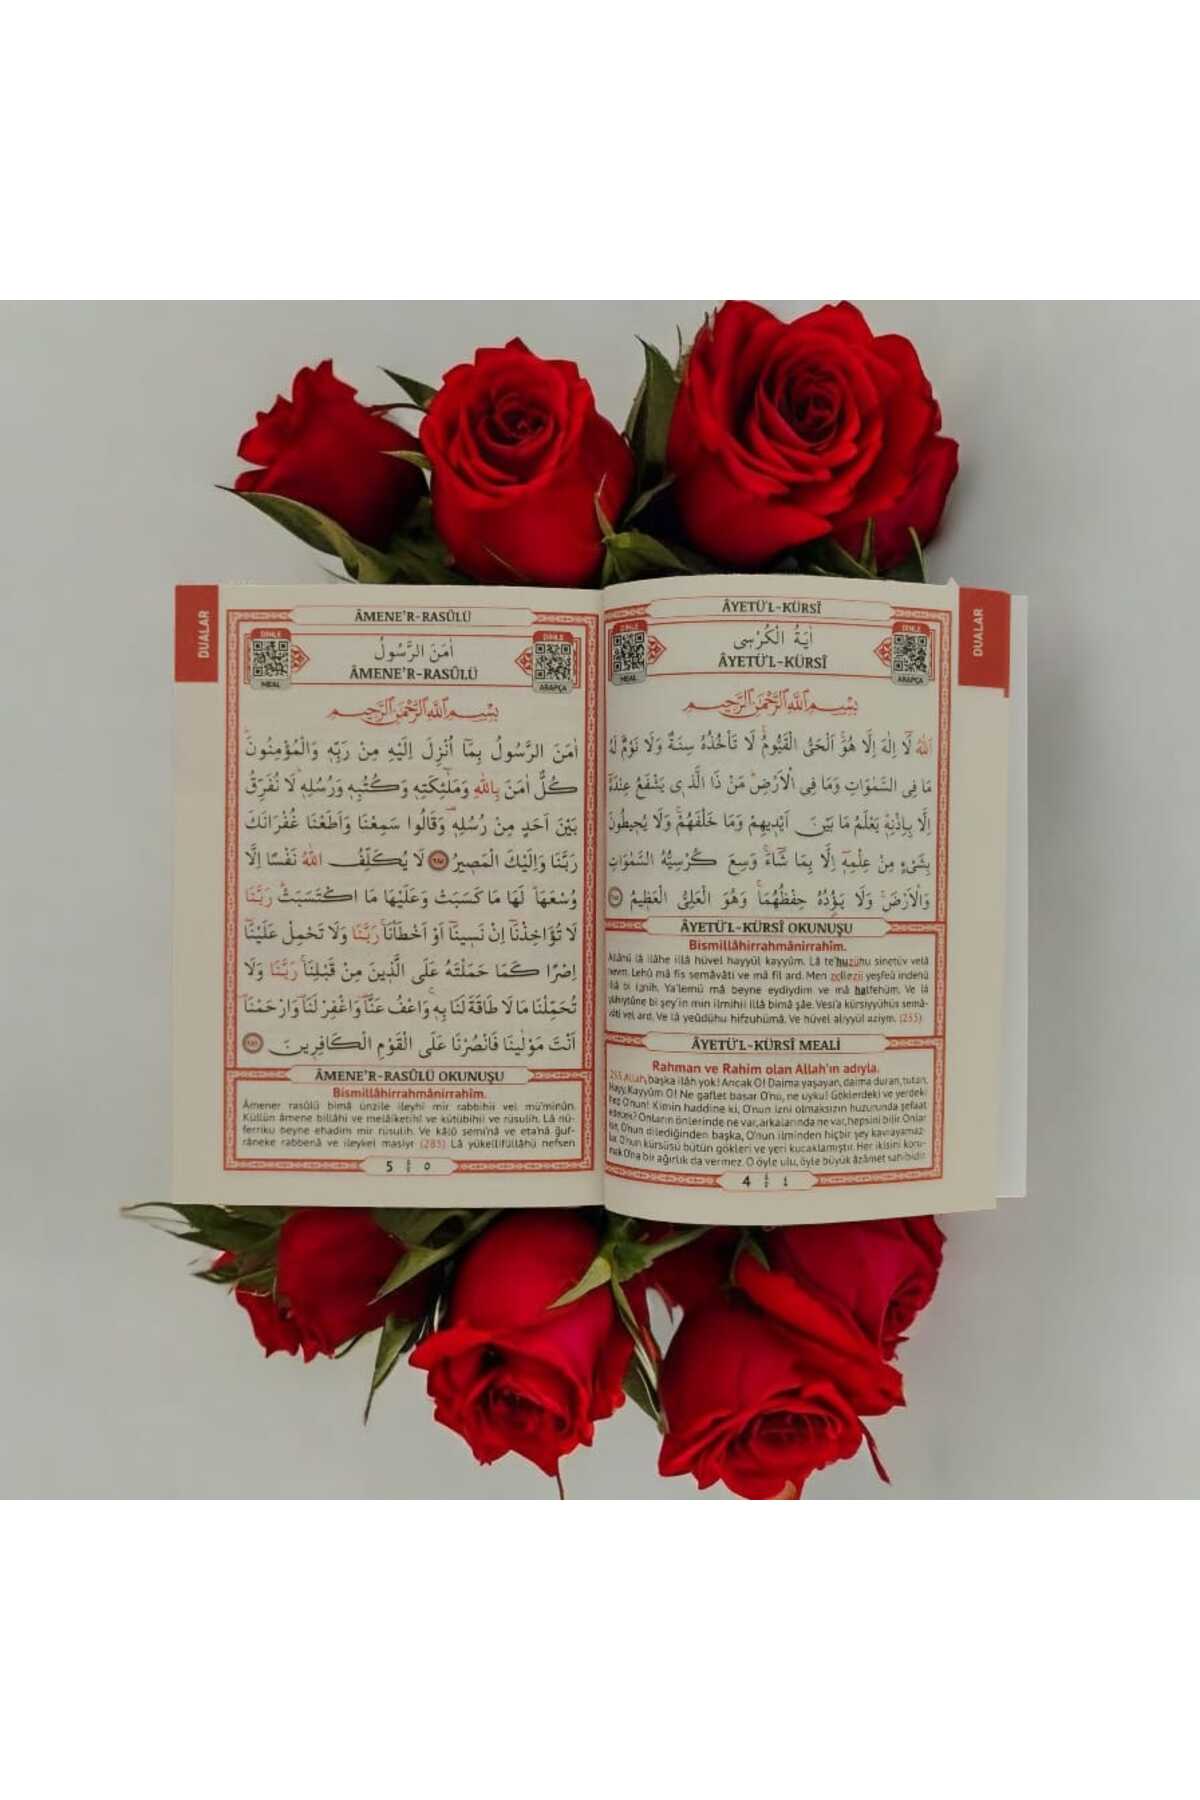 DUALAR
ÂYETÜ'L-KÜRSÎ
DİNLE
MEAL
DİNLE
ARAPÇA
اٰيَةُ الْكُرْسِى
ÂYETÜ'L-KÜRSÎ
بِسْــمِ اللّٰهِ الرَّحْمٰنِ الرَّحٖيــمِ
اَللّٰهُ لَٓا اِلٰهَ اِلَّا هُوَۚ اَلْحَىُّ الْقَيُّومُۚ لَا تَأْخُذُهُ سِنَةٌ وَلَا نَوْمٌ لَهُ
مَا فِى السَّمٰوَاتِ وَمَا فِى الْاَرْضِ مَنْ ذَا الَّذٖى يَشْفَعُ عِنْدَهُ
اِلَّا بِاِذْنِهٖ يَعْلَمُ مَا بَيْنَ اَيْدٖيهِمْ وَمَا خَلْفَهُمْۚ وَلَا يُحٖيطُونَ
بِشَىْءٍ مِنْ عِلْمِهٖٓ اِلَّا بِمَا شَٓاءَۚ وَسِعَ كُرْسِيُّهُ السَّمٰوَاتِ
وَالْاَرْضَۚ وَلَا يَؤُدُهُ حِفْظُهُمَاۚ وَهُوَ الْعَلِىُّ الْعَظٖيمُ ٢٥٥
ÂYETÜ'L-KÜRSÎ OKUNUŞU
Bismillâhirrahmânirrahîm.
Allâhü lâ ilâhe illâ hüvel hayyül kayyûm. Lâ te'huzühu sinetüv velâ
nevm. Lehû mâ fis semâvâti ve mâ fil ard. Men zellezii yeşfeü indehû
illâ bi iznih. Ya'lemü mâ beyne eydiydim ve mâ halfehüm. Ve lâ
yühiytûne bi şey'in min ilmihii illâ bimâ şâe. Vesi'a kürsiyyühüs semâ-
vâti vel ard. Ve lâ yeûdühu hifzuhümâ. Ve hüvel aliyyül aziym. (255)
ÂYETÜ'L-KÜRSÎ MEALİ
Rahman ve Rahim olan Allah'ın adıyla.
255 Allah, başka ilâh yok! Ancak O! Daima yaşayan, daima duran, tutan,
Hayy, Kayyûm O! Ne gaflet basar O'nu, ne uyku! Göklerdeki ve yerdeki
hep O'nun! Kimin haddine ki, O'nun izni olmaksızın huzurunda şefaat
edecek? Onların önlerinde ne var, arkalarında ne var, hepsini bilir. Onlar
ise, O'nun dilediğinden başka, O'nun ilminden hiçbir şey kavrayamaz-
lar. O'nun kürsüsü bütün gökleri ve yeri kucaklamıştır. Her ikisini koru-
mak O'na bir ağırlık da vermez. O öyle ulu, öyle büyük âzâmet sahibidir.
4 ٤
DUALAR
ÂMENE'R-RASÛLÜ
DİNLE
MEAL
DİNLE
ARAPÇA
اٰمَنَ الرَّسُولُ
ÂMENE'R-RASÛLÜ
بِسْــمِ اللّٰهِ الرَّحْمٰنِ الرَّحٖيــمِ
اٰمَنَ الرَّسُولُ بِمَٓا اُنْزِلَ اِلَيْهِ مِنْ رَبِّهٖ وَالْمُؤْمِنُونَۜ
كُلٌّ اٰمَنَ بِاللّٰهِ وَمَلٰٓئِكَتِهٖ وَكُتُبِهٖ وَرُسُلِهٖۜ لَا نُفَرِّقُ
بَيْنَ اَحَدٍ مِنْ رُسُلِهٖۜ وَقَالُوا سَمِعْنَا وَاَطَعْنَا غُفْرَانَكَ
رَبَّنَا وَاِلَيْكَ الْمَصٖيرُ ٢٨٥ لَا يُكَلِّفُ اللّٰهُ نَفْسًا اِلَّا
وُسْعَهَاۜ لَهَا مَا كَسَبَتْ وَعَلَيْهَا مَا اكْتَسَبَتْۜ رَبَّنَا
لَا تُؤَاخِذْنَٓا اِنْ نَسٖينَٓا اَوْ اَخْطَأْنَاۚ رَبَّنَا وَلَا تَحْمِلْ عَلَيْنَٓا
اِصْرًا كَمَا حَمَلْتَهُ عَلَى الَّذٖينَ مِنْ قَبْلِنَاۚ رَبَّنَا وَلَا
تُحَمِّلْنَا مَا لَا طَاقَةَ لَنَا بِهٖۚ وَاعْفُ عَنَّا۠ وَاغْفِرْ لَنَا۠ وَارْحَمْنَا۠
اَنْتَ مَوْلٰينَا فَانْصُرْنَا عَلَى الْقَوْمِ الْكَافِرٖينَ ٢٨٦
ÂMENE'R-RASÛLÜ OKUNUŞU
Bismillâhirrahmânirrahîm.
Âmener rasûlü bimâ ünzile ileyhi mir rabbihii vel mü'minûn.
Küllün âmene billâhi ve melâiketihî ve kütübihii ve rüsulih. Lâ nü-
ferriku beyne ehadim mir rusulih. Ve kâlû semi'nâ ve eta'nâ ğuf-
râneke rabbenâ ve ileykel masiyr (285) Lâ yükellifüllâhü nefsen
5 ٥